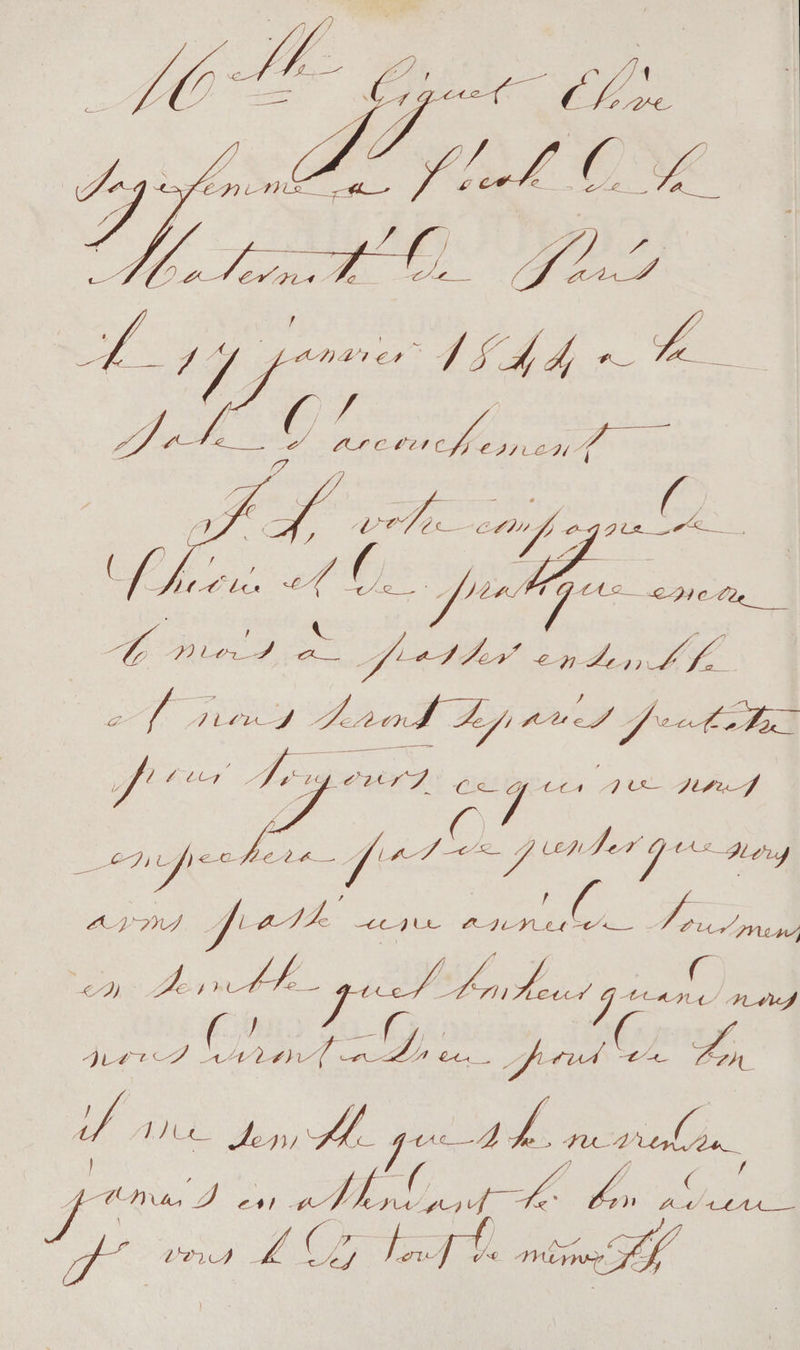 Melle Giguet Elève
Sagefemme a l'ecole De la
Maternité De Paris
le 17 janvier 1844 a la
Sale D'acouchement
votre compagne de
Chevet et De pratique encore
6 mois à passer ensemble
et nous seront separes peutetre
pour toujours ce qui ne nous
empechera pas de penser que nous
avons passé une année de tourmens
en semble quel bonheur quand nous
nous diront adieu pour de bon
il me semble que sa ne viendra
jamais en attendant le bon adieu
je vous le Dis tout de meme